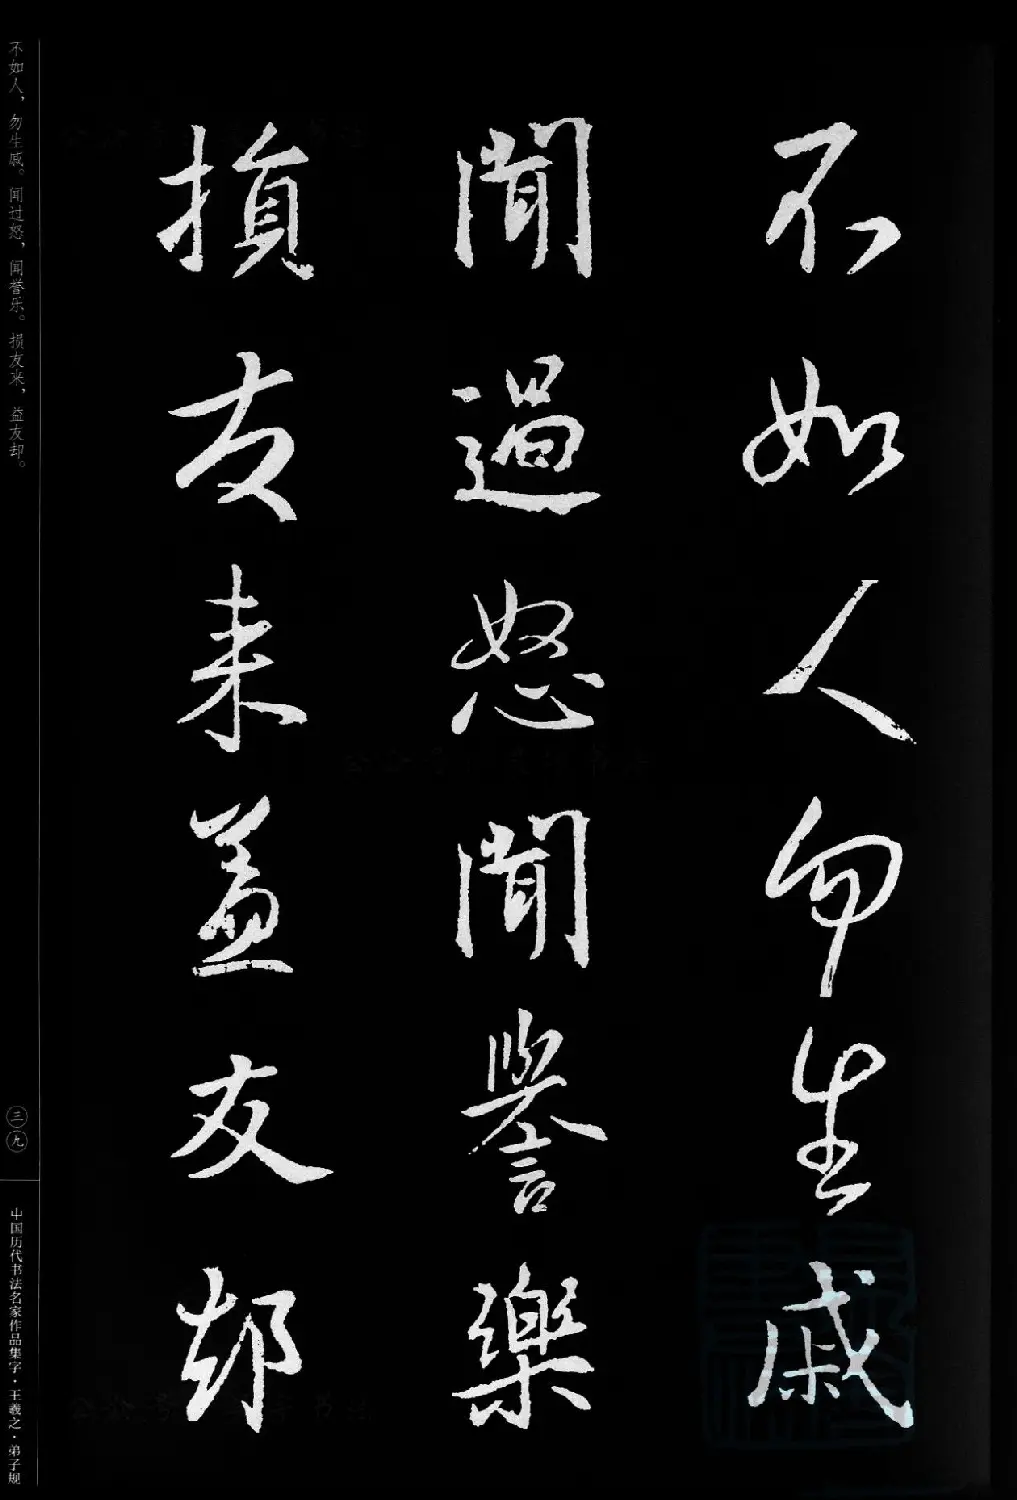 不如人勿生戚
聞過怒聞譽樂
損友来益友却
不如人，勿生戚。闻过怒，闻誉乐。损友来，益友却。
三九
中国历代书法名家作品集字·王羲之·弟子规